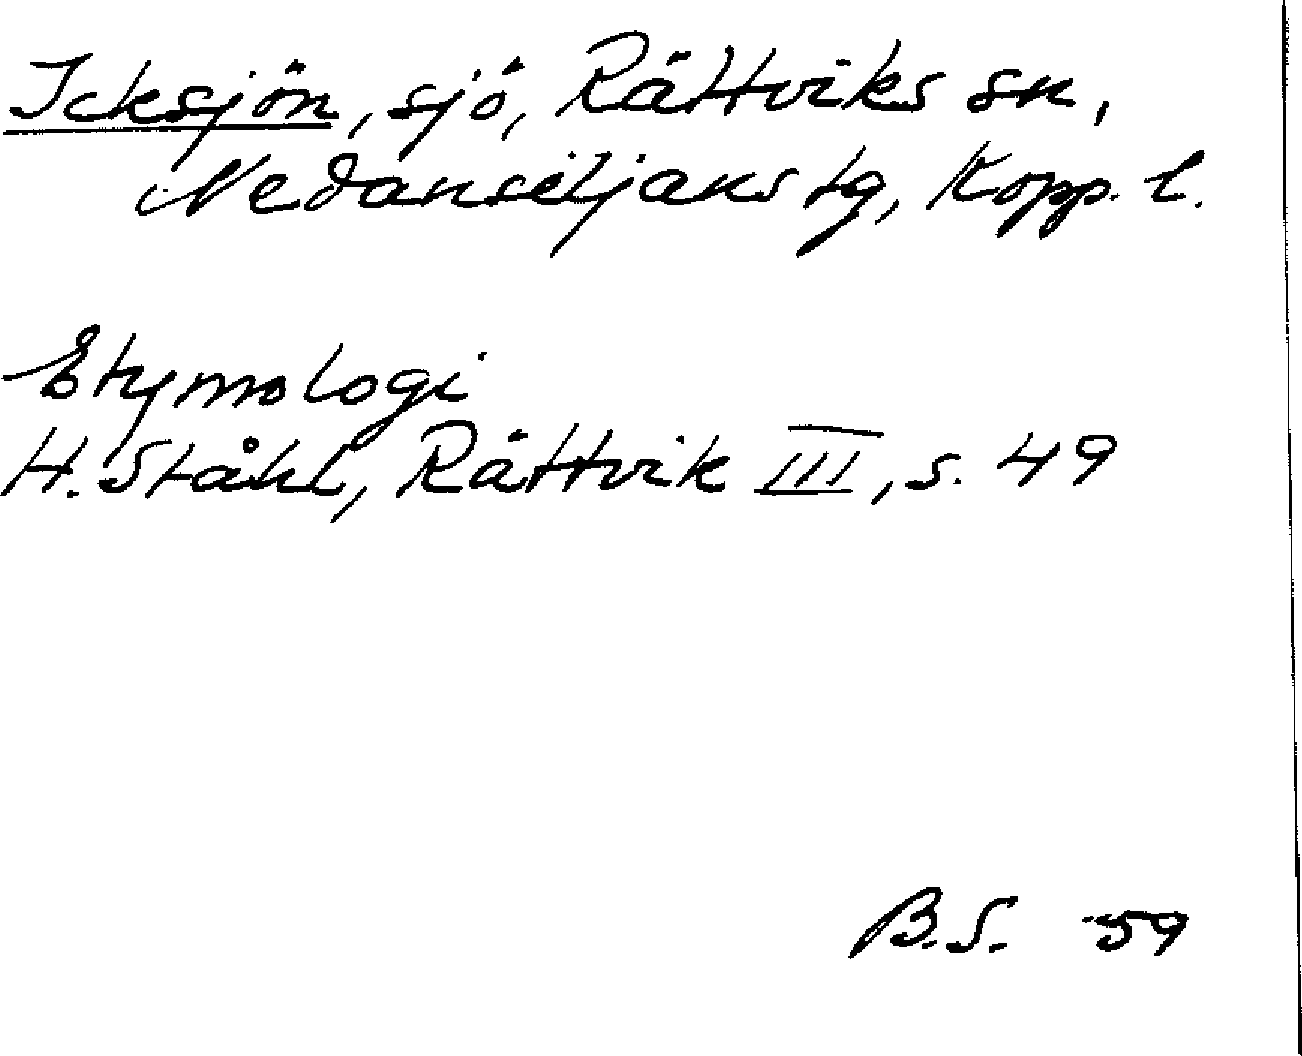 Icksjön, sjö, Rättviks sn,
Nedansiljans tg, Kopp. l.
Etymologi
H. Ståhl, Rättvik III, s. 49
B.S. 59